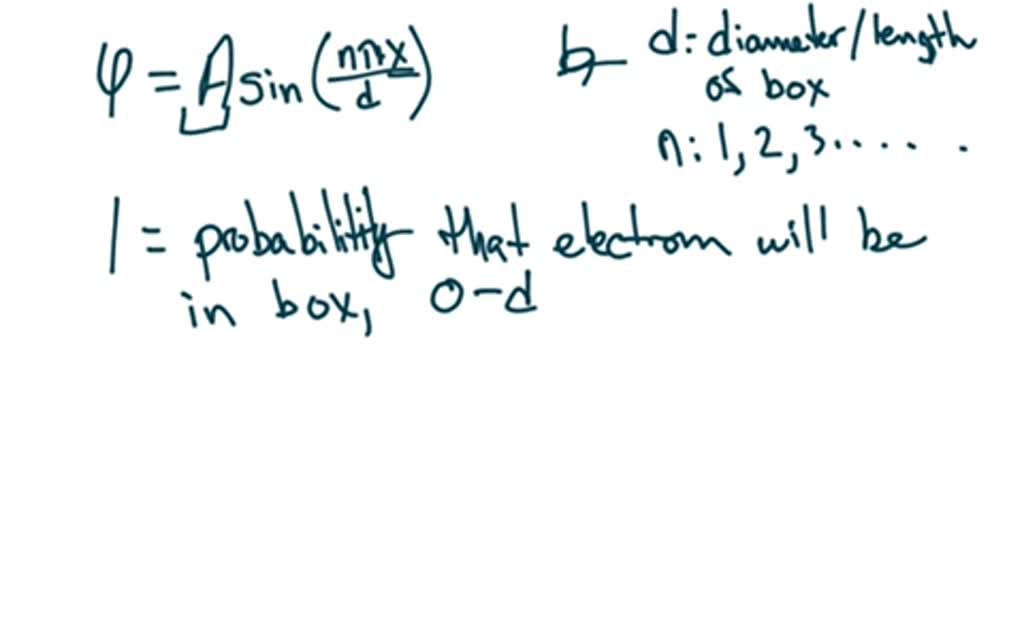 φ = A sin(nπx/d)
d: diameter/length
of box
n: 1, 2, 3.... .
1 = probability that electron will be
in box, 0-d